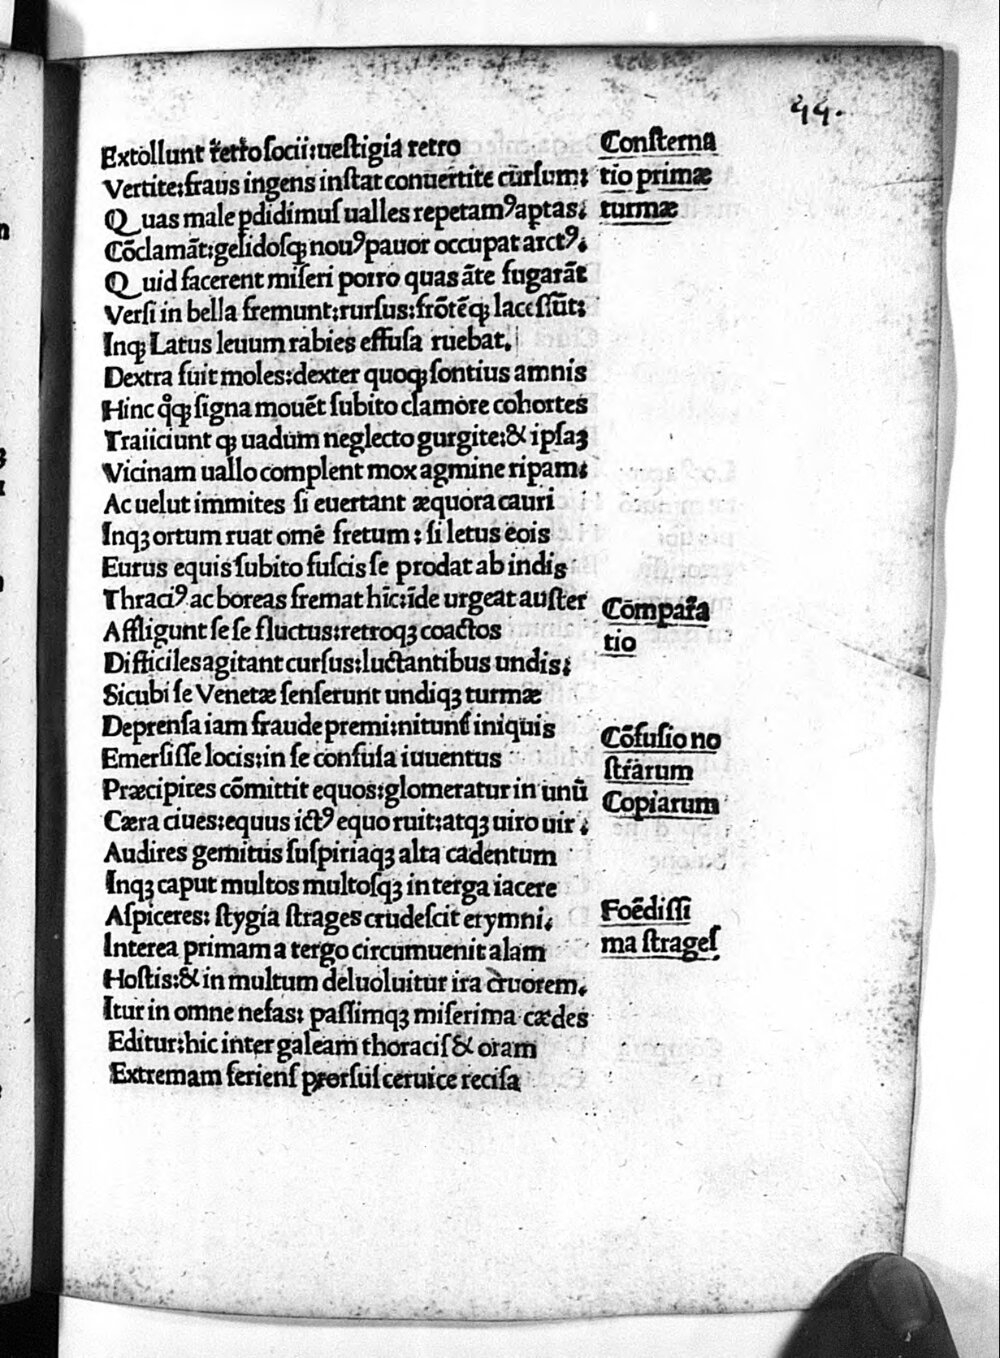 44.
Extollunt retro socii: uestigia retro
Vertite: fraus ingens instat conuertite cursum:
Quas male pdidimus ualles repetamꝰ aptas.
Cōclamāt: gelidosqꝫ nouꝰ pauor occupat arctꝰ.
Quid facerent miseri porro quas āte fugarāt
Versi in bella fremunt: rursus: frōtēqꝫ lacessūt:
Inqꝫ Latus leuum rabies effusa ruebat.
Dextra fuit moles: dexter quoqꝫ sontius amnis
Hinc signa mouēt subito clamore cohortes
Traiiciunt qꝫ uadum neglecto gurgite: & ipsaꝫ
Vicinam uallo complent mox agmine ripam:
Ac uelut immites si euertant æquora cauri
Inqꝫ ortum ruat omē fretum: si letus eois
Eurus equis subito fuscis se prodat ab indis
Thraciꝰ ac boreas fremat hīc: īde urgeat auster
Affligunt se se fluctus: retroqꝫ coactos
Difficiles agitant cursus: luctantibus undis:
Sicubi se Venetæ senserunt undiqꝫ turmæ
Deprensa iam fraude premi: nituns iniquis
Emersisse locis: in se confusa iuuentus
Præcipites cōmittit equos: glomeratur in unū
Cæra ciues: equus ictꝰ equo ruit: atqꝫ uiro uir.
Audires gemitus suspiriaqꝫ alta cadentum
Inqꝫ caput multos multosqꝫ in terga iacere
Aspiceres: stygia strages crudescit erymni.
Interea primam a tergo circumuenit alam
Hostis: & in multum deluoluitur ira cruorem.
Itur in omne nefas: passimqꝫ miserima cædes
Editur: hic inter galeam thoracis & oram
Extremam feriens prorsus ceruice recisa
Consterna
tio primæ
turmæ
Compara
tio
Cōfusio no
strarum
Copiarum
Foedissi
ma strages